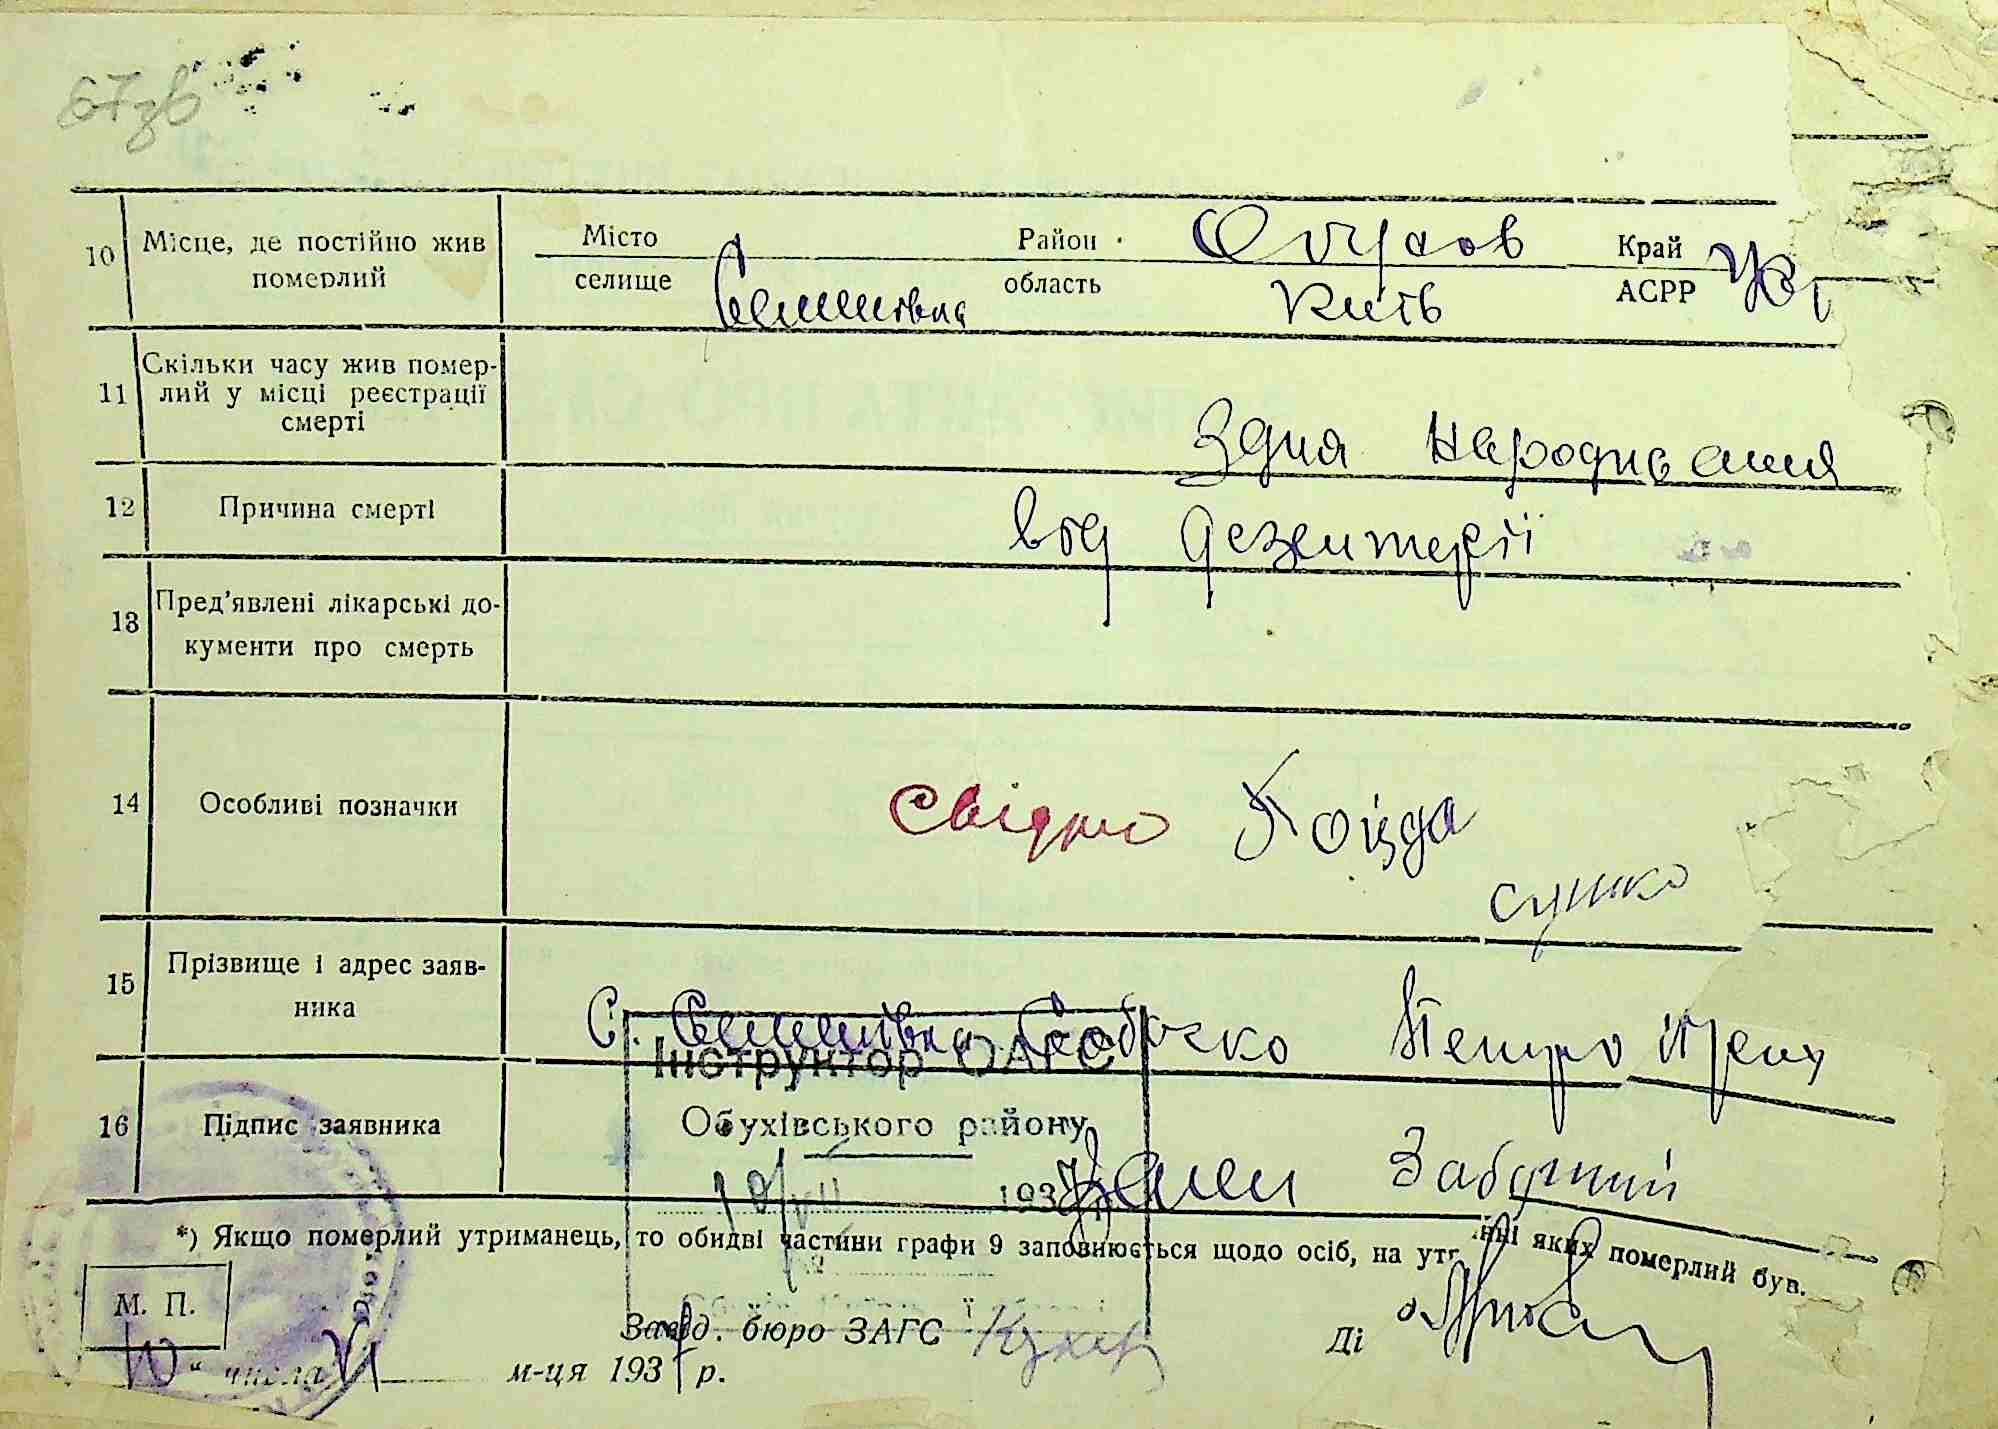 67зв
10 Місце, де постійно жив померлий Місто селище Семенівка Район Обухов область Київ Край АСРР
11 Скільки часу жив помер-
лий у місці реєстрації
смерті
Здня народження
12 Причина смерті від дезентерії
13 Пред'явлені лікарські до-
кументи про смерть
14 Особливі позначки свідно
15 Прізвище і адрес заяв-
ника
С. Семенівка Петро
Інструктор ОАГС
16 Підпис заявника
Обухівського району
10/VII 1937
*) Якщо померлий утриманець, то обидві частини графи 9 заповнюється щодо осіб, на утр нні яких померлий був.
М. П.
Завід. бюро ЗАГС
Ді
10 " числа VI м-ця 1937 р.